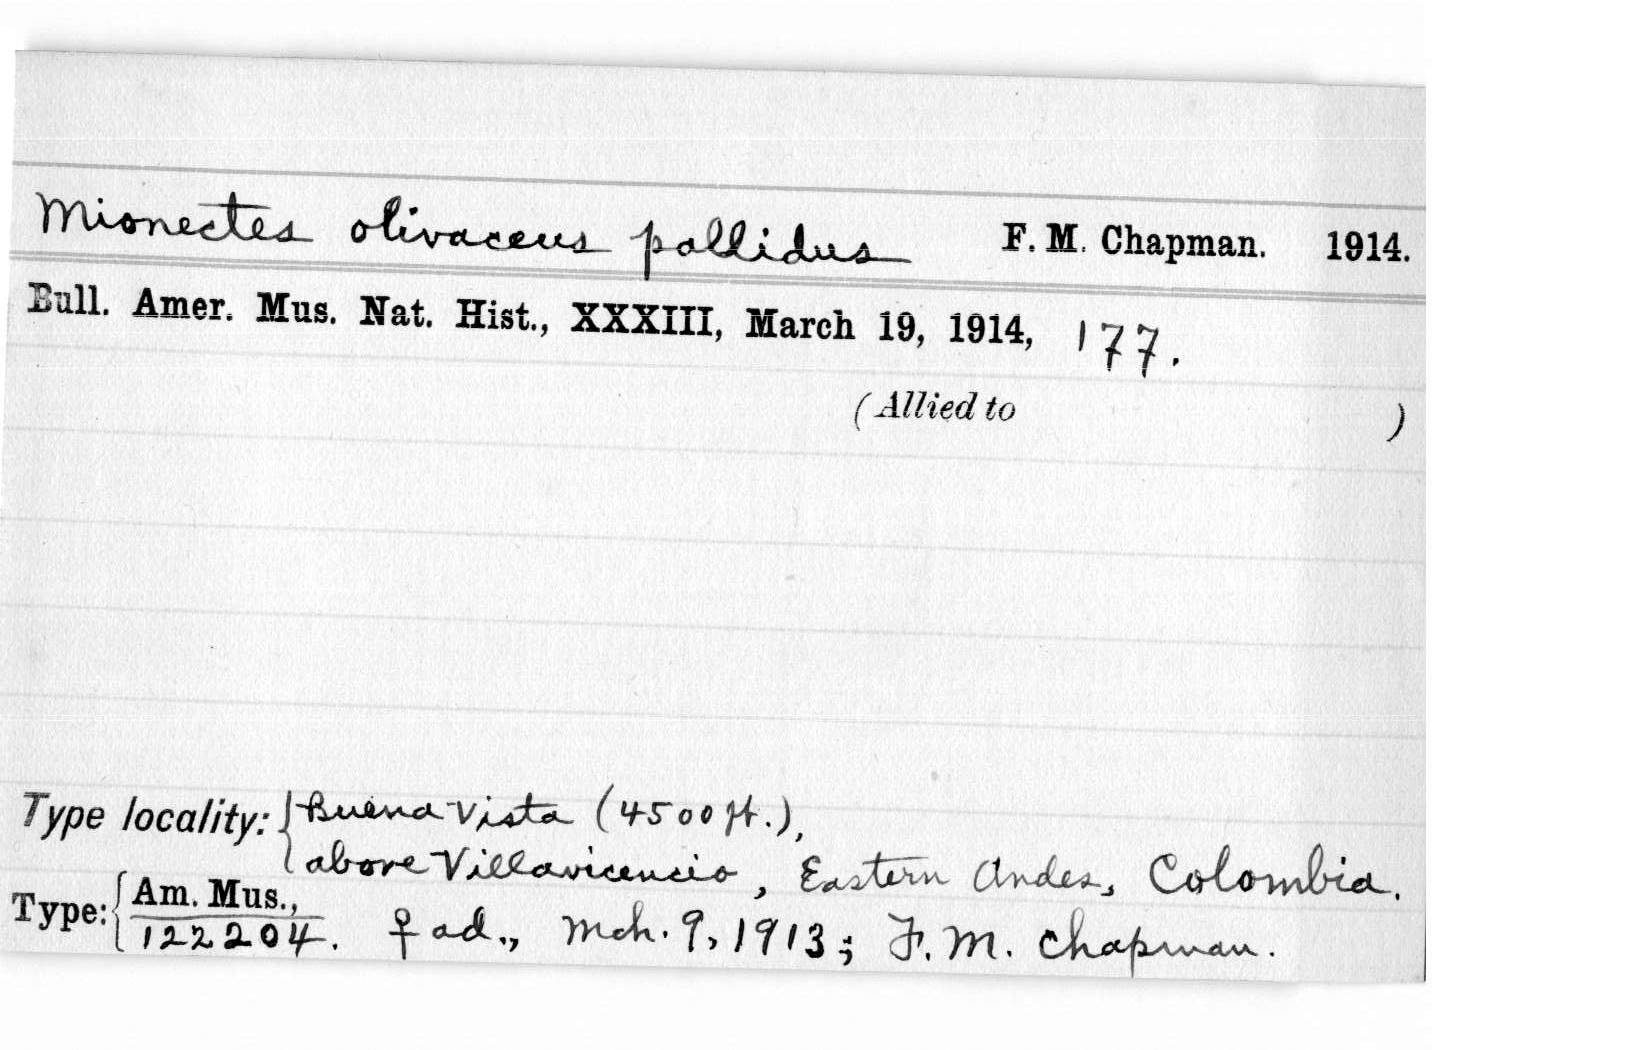 Mionectes olivaceus pallidus F. M. Chapman. 1914.
Bull. Amer. Mus. Nat. Hist., XXXIII, March 19, 1914, 177.
(Allied to )
Type locality: { Buena Vista (4500 ft.),
above Villavicencio, Eastern Andes, Colombia.
Type: { Am. Mus.,
122204. ♀ ad., Mch. 9, 1913; F. M. Chapman.